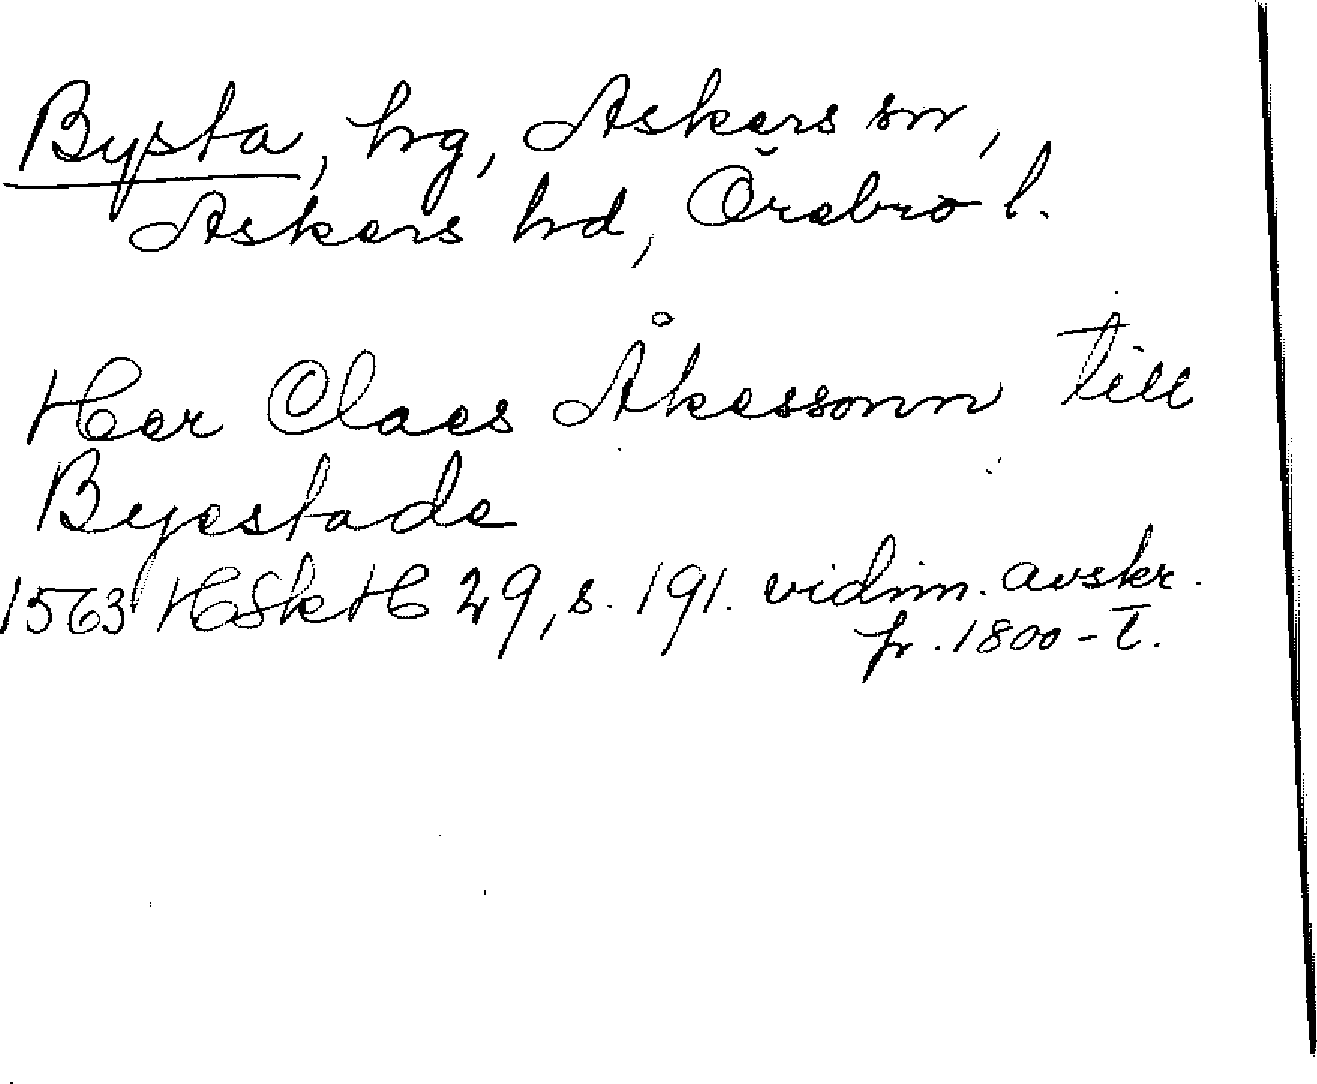 Bysta, hg, Askers sn,
Askers hd, Örebro l.
Her Claes Åkessonn till
Byestade
1563 HSkH 29, s. 191. vidim. avskr.
fr. 1800-t.